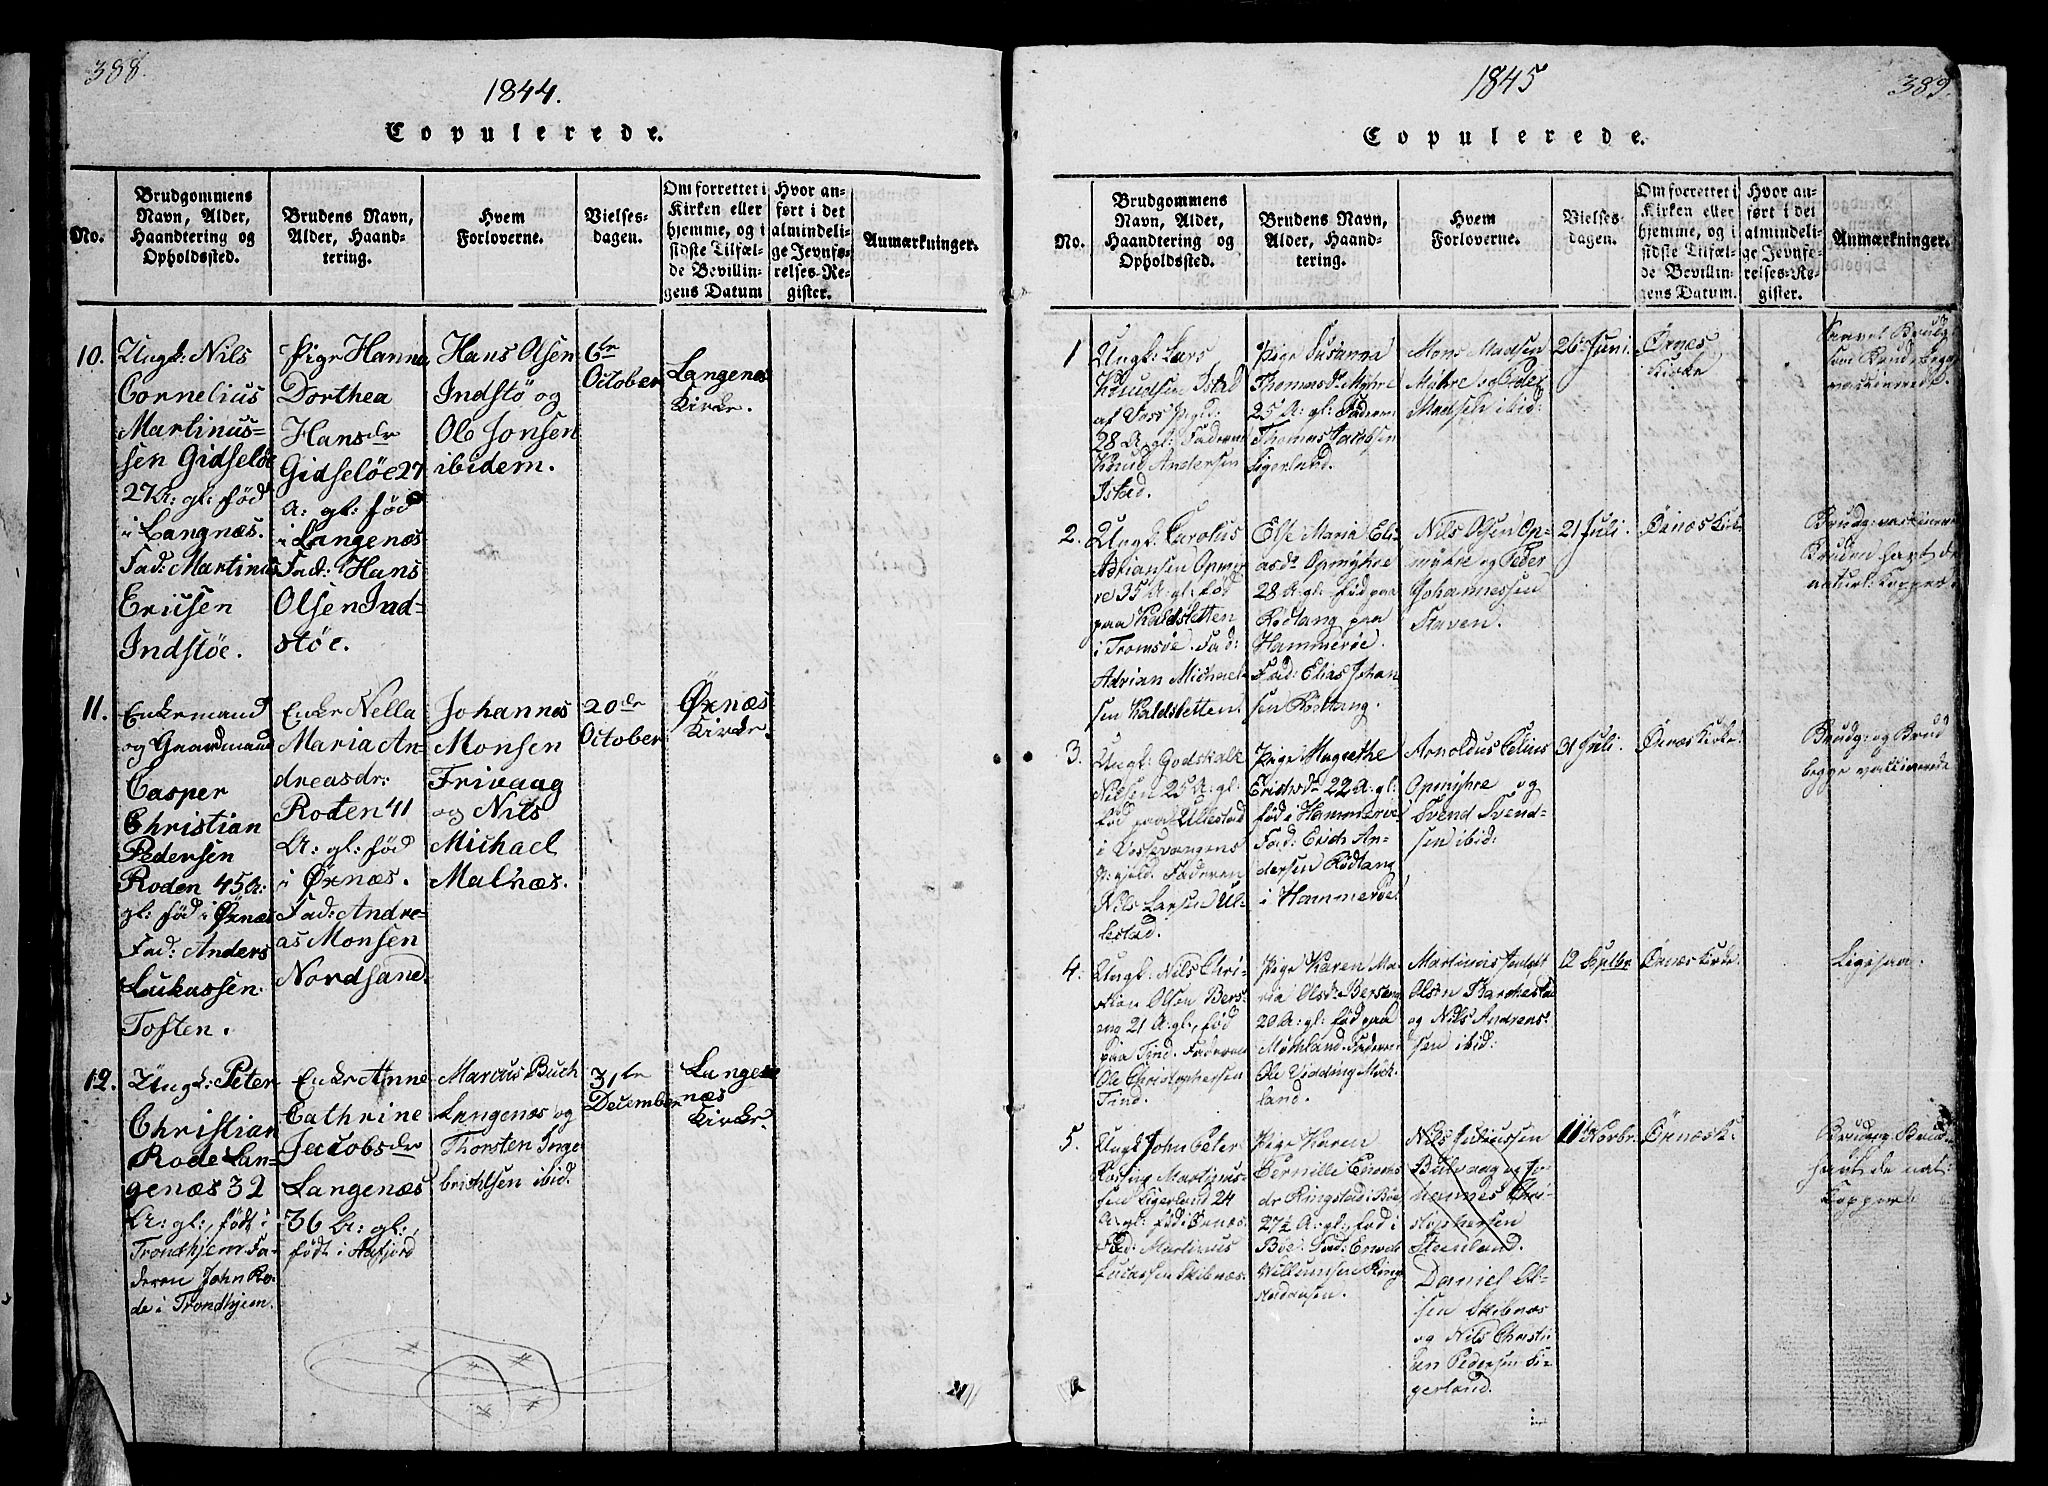 388.
1844.
Copulerede.
No.
Brudgommens
Navn, Alder,
Haandtering og
Opholdssted.
Brudens Navn,
Alder, Haand-
tering.
Hvem
Forloverne.
Vielses-
dagen.
Om forrettet i
Kirken eller
hjemme, og i
sidste Tilfæl-
de Bevillin-
gens Datum
Hvor an-
ført i det
almindeli-
ge Jevnfø-
relses-Re-
gister.
Anmærkninger.
10.
Ungk: Nils
Cornelius
Martinus-
sen Gidseløe
27 A: gl: fød
i Langnæs.
Fad: Martinus
Ericsen
Indstøe.
Pige Hanna
Dorthea
Hansdr
Gidseløe 27
A: gl: fød
i Langenæs
Fad: Hans
Olsen Ind-
støe.
Hans Olsen
Indstö og
Ole Jonsen
ibidem.
6te
October
Langenæs
Kirke.
11.
Enkemand
og Gaardmand
Casper
Christian
Pedersen
Roden 45 A:
gl: fød i Øxnæs
Fad: Anders
Lukassen
Toften.
Enke Nella
Maria An-
dreasdr:
Roden 41
A: gl: fød
i Øxnæs.
Fad: Andre-
as Monsen
Nordsand.
Johannes
Monsen
Frivaag
og Nils
Michael
Malnæs.
20de
October
Øxnæs
Kirke.
12.
Ungk: Peter
Christian
Rode Lan-
genæs 32
A: gl:, født i
Trondhjem Fa-
deren John Ro-
de i Trondhjem.
Enke Anne
Cathrine
Jacobsdr
Langenæs
36 A: gl:,
født i Aafjord
Marcus Buch
Langenæs og
Thorsten Inge
brichtsen ibid.
31te
December
Lange
næs
Kirke.
1845
389.
Copulerede.
No.
Brudgommens
Navn, Alder,
Haandtering og
Opholdssted.
Brudens Navn,
Alder, Haand-
tering.
Hvem
Forloverne.
Vielses-
dagen.
Om forrettet i
Kirken eller
hjemme, og i
sidste Tilfæl-
de Bevillin-
gens Datum.
Hvor an-
ført i det
almindeli-
ge Jevnfø-
relses-Re-
gister.
Anmærkninger.
1
Ungk: Lars
Knudsen Istad
af Voss Pgld:
28 A. gl: Faderen
Knud Andersen
Istad.
Pige Susanna
Thomasdr Myhre
25 A: gl: Faderen
Thomas Jacobsen
Tigerland.
Mons Madsen
Myhre og Peder
Madsen ibid:
26 Juni.
Øxnes
Kirke
Saavel Brudg
som Brud begge
vaccinerede.
2.
Ungk: Carolus
Adriansen Opmyh-
re 35 A: gl: fød
paa Kaldsletten
i Tromsøe. Fad:
Adrian Michael-
sen Kaldsletten.
Else Maria Eli-
asdr Opmyhre
28 A: gl: fød paa
Rødtang paa
Hammerøe.
Fad: Elias Johan
sen Rødtang.
Nils Olsen Op-
myhre og Peder
Johannessen
Staven.
21 Juli.
Öxnæs Kirke
Brudg: vaccineret
Bruden havt de
naturl: Kopper.
3.
Ungk: Godskalk
Nilsen 25 A: gl:
fød paa Ullestad
i Vossevangens
P: gjeld. Faderen
Nils Larsen Ul-
lestad.
Pige Magrethe
Erichsdr 22 A: gl:
fød i Hammerøe
Fad: Erich An-
dersen Rødtang
i Hammerøe.
Arnoldus Celius
Opmyhre og
Svend Svend-
sen ibid:
31 Juli.
Öxnæs Kirke.
Brudg: og Brud
begge vaccinerede
4.
Ungk: Nils Chri-
stian Olsen Bers-
eng 21 A: gl:, fød
paa Tind. Faderen
Ole Christophersen
Tind.
Pige Karen Ma-
ria Olsdr Berseng
20 A: gl: fød paa
Mochland. Faderen
Ole Vidding Moch-
land.
Olsen Barchestad
og Nils Andreas-
sen ibid:
12 Septbr.
Öxnæs Kirke.
Ligesaa.
5.
Ungk John Peter
Rosing Martinus-
sen Tigerland 24
A: gl: fød i Öxnæs.
Fad: Martinus
Lucassen Skibnæs.
Pige Karen
Pernille Enevols
dr Ringstad i Böe
27½ A: gl:, fød i
Böe. Fad: Enevold
Willumsen Ring
Nils Juliussen
Bulvaag og Jo-
hannes Chri-
stophersen
Steinland.
Daniel Ol-
sen Skibnæs
og Nils Christi
an Pedersen Ti-
gerland.
11te Novbr.
Öxnæs K.
Brudg: Bruden
havt de nat:
Kopper.